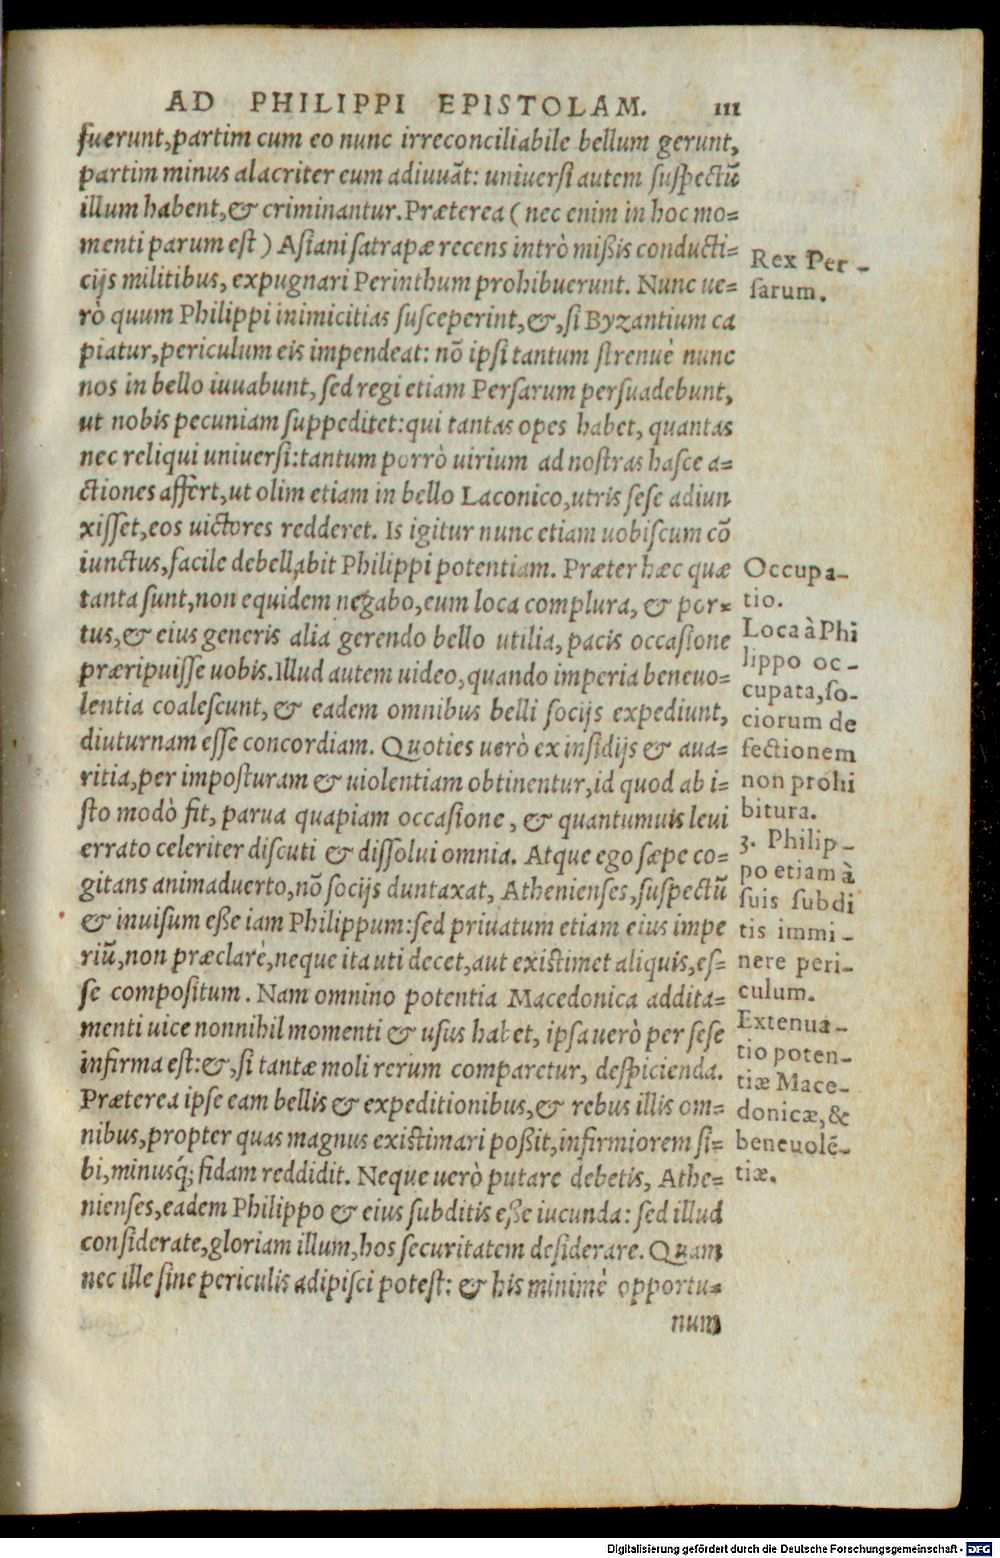 AD PHILIPPI EPISTOLAM. 111
fuerunt, partim cum eo nunc irreconciliabile bellum gerunt,
partim minus alacriter eum adiuuāt: uniuersi autem suspectū
illum habent, & criminantur. Præterea (nec enim in hoc mo=
menti parum est) Asiani satrapæ recens intrò mißis conducti=
cijs militibus, expugnari Perinthum prohibuerunt. Nunc ue=
rò quum Philippi inimicitias susceperint, &, si Byzantium ca
piatur, periculum eis impendeat: nō ipsi tantum strenuè nunc
nos in bello iuuabunt, sed regi etiam Persarum persuadebunt,
ut nobis pecuniam suppeditet: qui tantas opes habet, quantas
nec reliqui uniuersi: tantum porrò uirium ad nostras hasce a=
ctiones affert, ut olim etiam in bello Laconico, utris sese adiun
xisset, eos uictores redderet. Is igitur nunc etiam uobiscum cō
iunctus, facile debellabit Philippi potentiam. Præter hæc quæ
tanta sunt, non equidem negabo, eum loca complura, & por=
tus, & eius generis alia gerendo bello utilia, pacis occasione
præripuisse uobis. Illud autem uideo, quando imperia beneuo=
lentia coalescunt, & eadem omnibus belli socijs expediunt,
diuturnam esse concordiam. Quoties uerò ex insidijs & aua=
ritia, per imposturam & uiolentiam obtinentur, id quod ab i=
sto modò fit, parua quapiam occasione, & quantumuis leui
errato celeriter discuti & dissolui omnia. Atque ego sæpe co=
gitans animaduerto, nō socijs duntaxat, Athenienses, suspectū
& inuisum eße iam Philippum: sed priuatum etiam eius impe
riū, non præclarè, neque ita uti decet, aut existimet aliquis, es=
se compositum. Nam omnino potentia Macedonica addita=
menti uice nonnihil momenti & usus habet, ipsa uerò per sese
infirma est: &, si tantæ moli rerum comparetur, despicienda.
Præterea ipse eam bellis & expeditionibus, & rebus illis om=
nibus, propter quas magnus existimari poßit, infirmiorem si=
bi, minusq́; fidam reddidit. Neque uerò putare debetis, Athe=
nienses, eadem Philippo & eius subditis eße iucunda: sed illud
considerate, gloriam illum, hos securitatem desiderare. Quam
nec ille sine periculis adipisci potest: & his minimè opportu=
num
Rex Per-
sarum.
Occupa-
tio.
Loca à Phi
lippo oc-
cupata, so-
ciorum de
fectionem
non prohi
bitura.
3. Philip-
po etiam à
suis subdi
tis immi-
nere peri-
culum.
Extenua-
tio poten-
tiæ Mace-
donicæ, &
beneuolē-
tiæ.
Digitalisierung gefördert durch die Deutsche Forschungsgemeinschaft - DFG